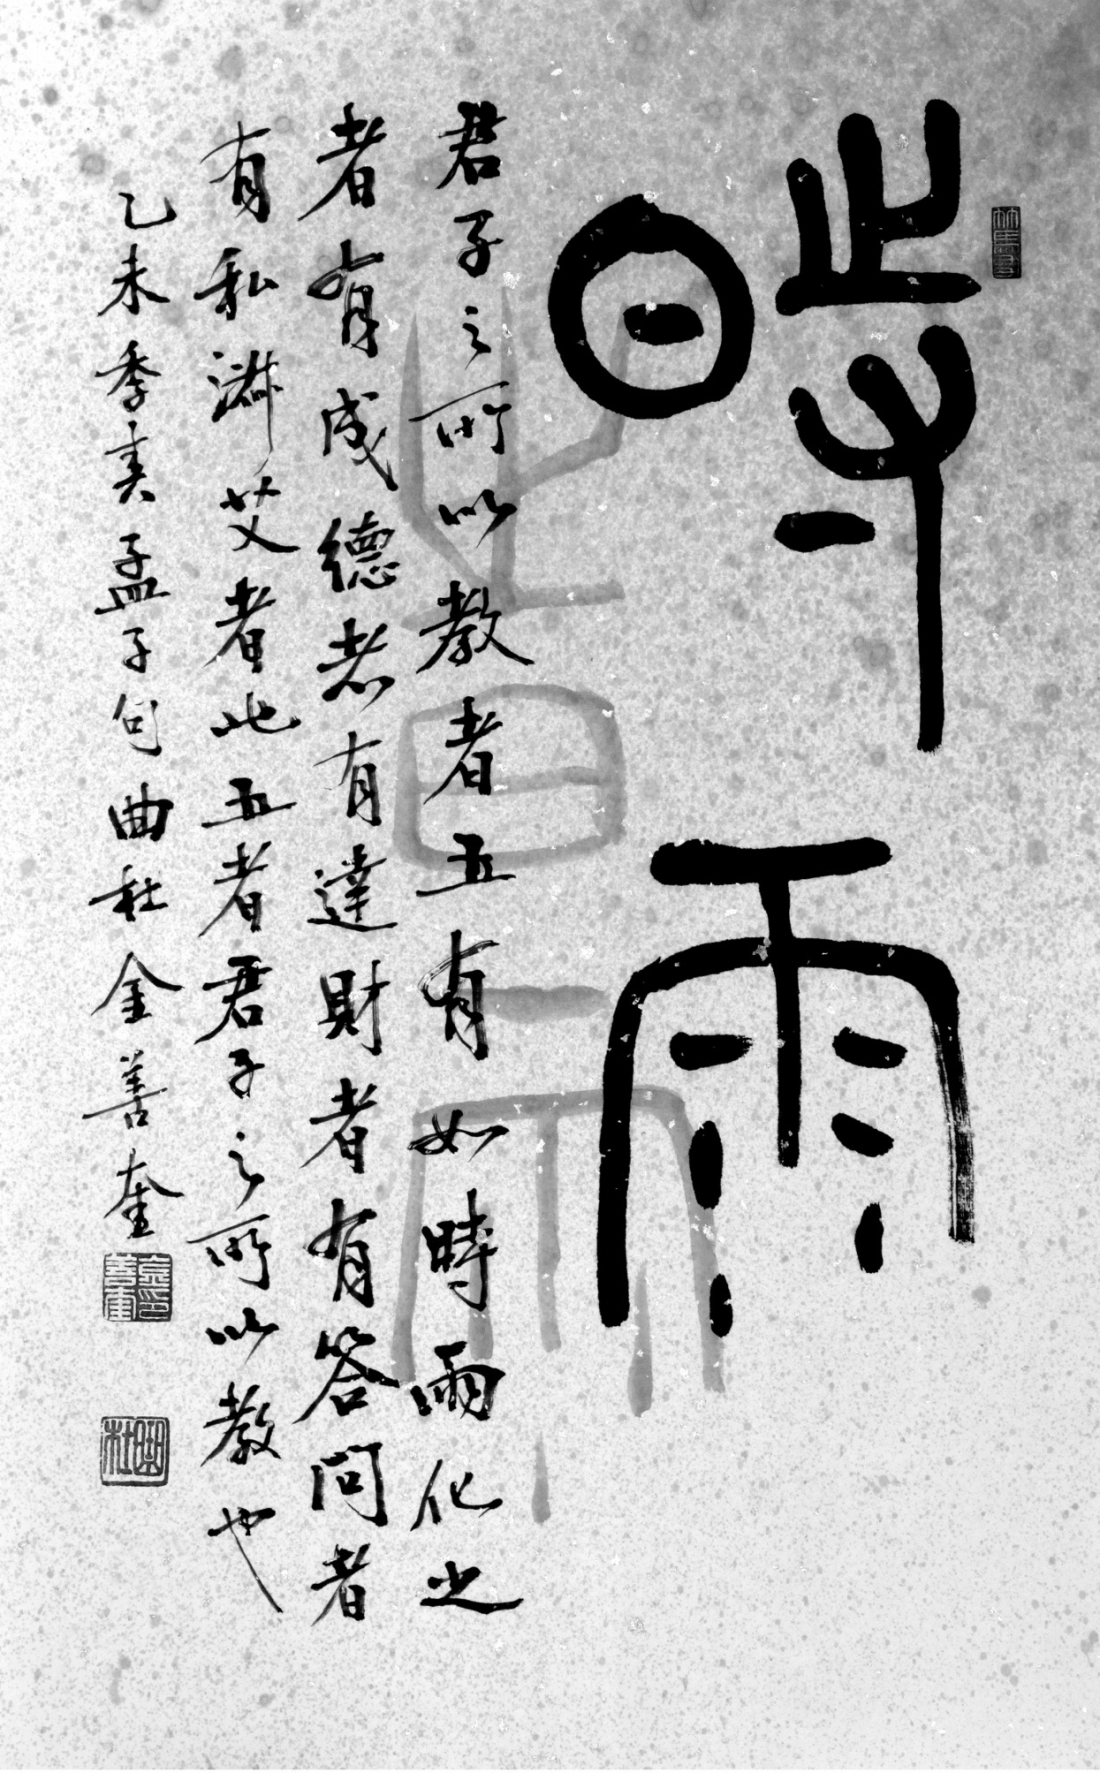 時雨
君子之所以教者五有如時雨化之
者有成德者有達財者有答問者
有私淑艾者此五者君子之所以教也
乙未季夏孟子句曲社金善奎